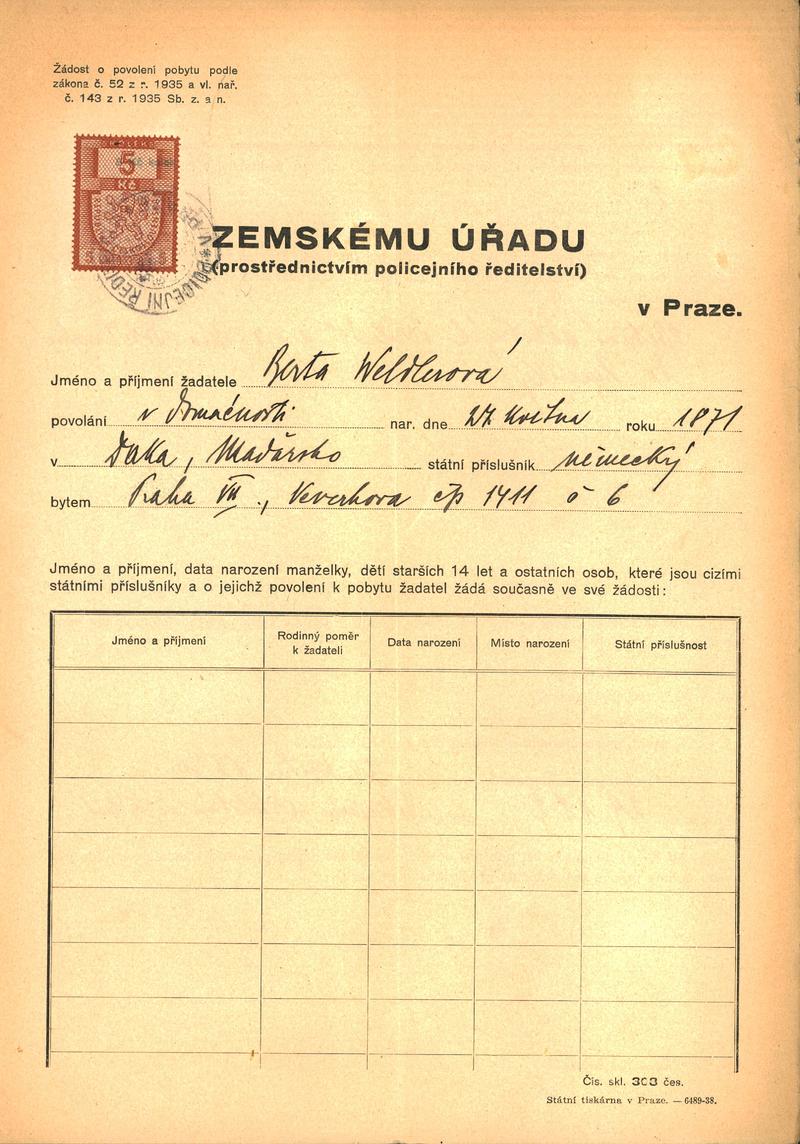 Žádost o povolení pobytu podle
zákona č. 52 z r. 1935 a vl. nař.
č. 143 z r. 1935 Sb. z. a n.
5
Kč
ZEMSKÉMU ÚŘADU
(prostřednictvím policejního ředitelství)
v Praze.
Jméno a příjmení žadatele Berta Weldlerová
povolání v domácnosti nar. dne 27. května roku 1871
v Daka, Maďarsko státní příslušník německý
bytem Praha VII., Veverkova čp 1411 č 6
Jméno a příjmení, data narození manželky, dětí starších 14 let a ostatních osob, které jsou cizími
státními příslušníky a o jejichž povolení k pobytu žadatel žádá současně ve své žádosti:
Jméno a příjmení
Rodinný poměr k žadateli
Data narození
Místo narození
Státní příslušnost
Čís. skl. 303 čes.
Státní tiskárna v Praze. — 6489-38.